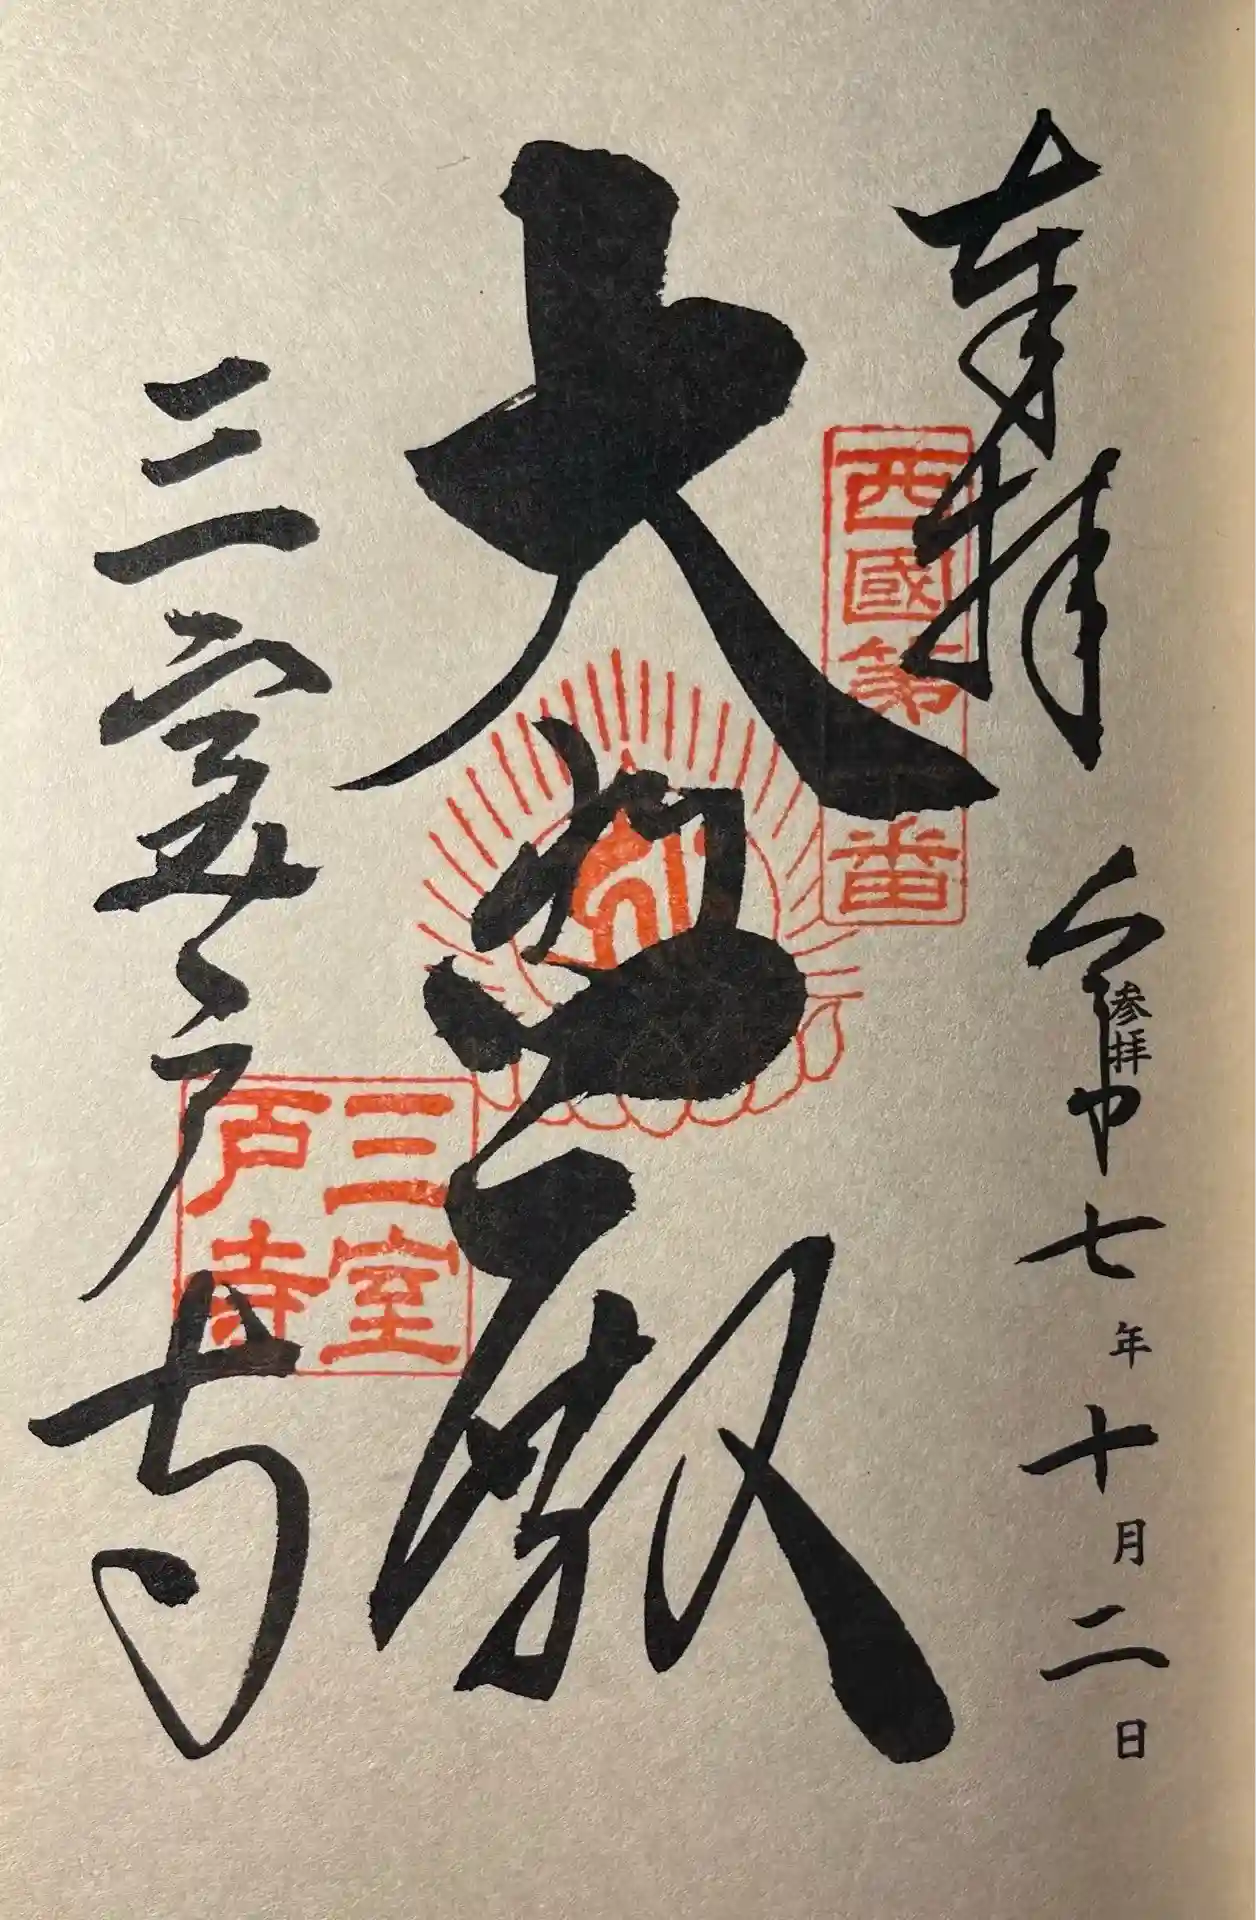 奉拝
令和七年十月二日
参拝
西國第番
大悲殿
三室戸寺
三室戸寺